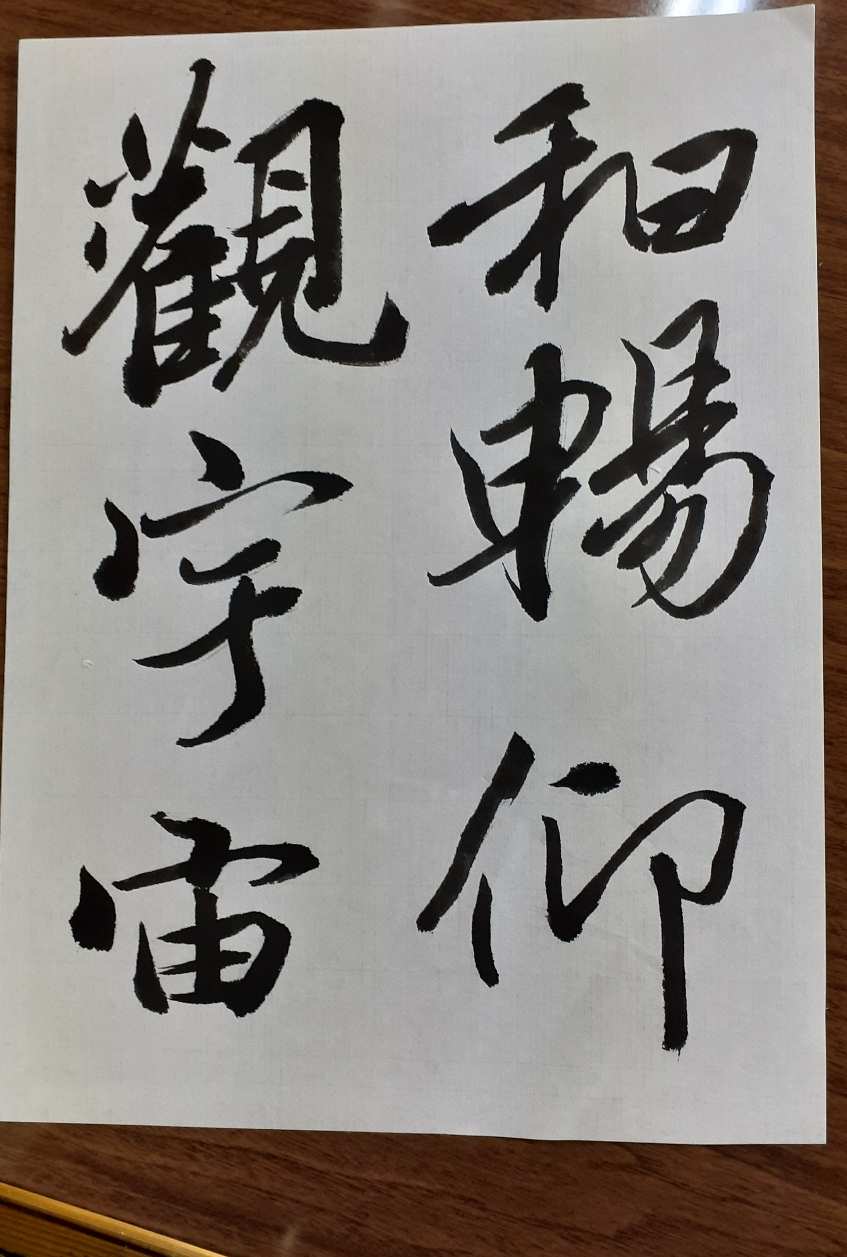 和暢仰
觀宇宙